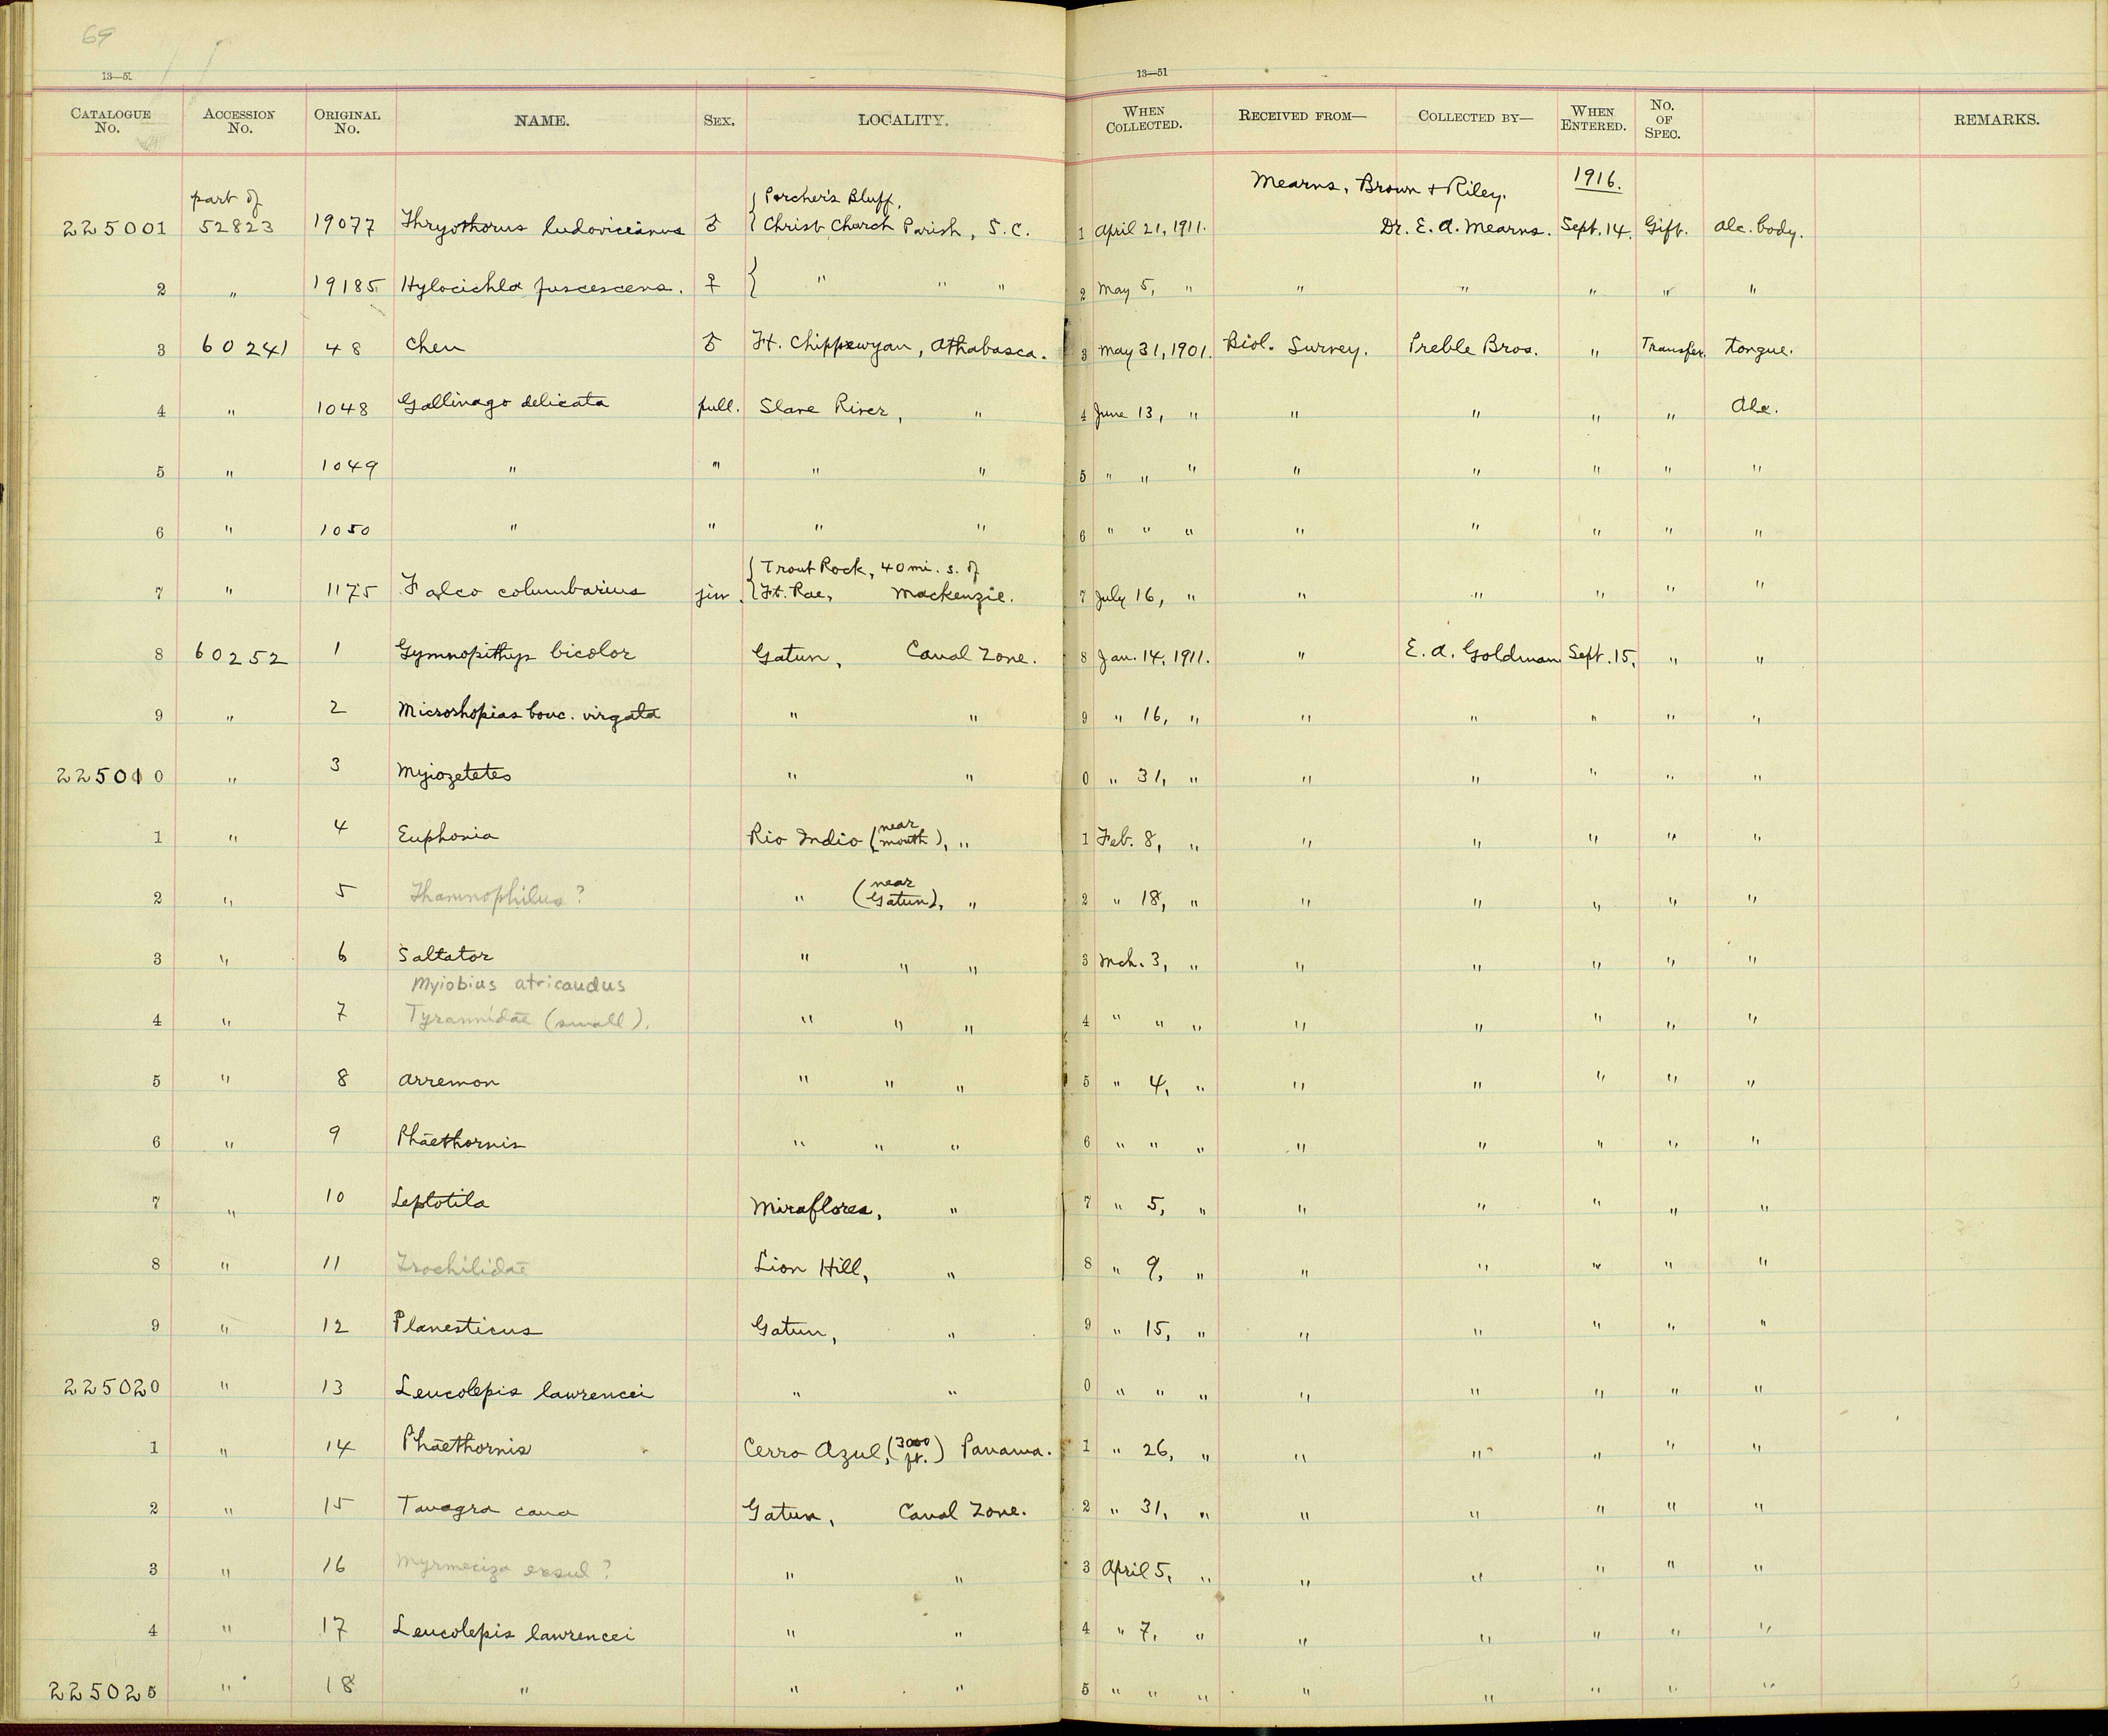 69
13—51 13—51
CATALOGUE No. ACCESSION No. ORIGINAL No. NAME. SEX. LOCALITY. WHEN COLLECTED. RECEIVED FROM— COLLECTED BY— WHEN ENTERED. No. OF SPEC. REMARKS.
part of { Porcher's Bluff, Mearns, Brown & Riley. 1916.
225001 52823 19077 Thryothorus ludovicianus ♂ { Christ Church Parish, S.C. 1 April 21, 1911. Dr. E. A. Mearns. Sept. 14. Gift. alc. body.
2 " 19185 Hylocichla fuscescens. ♀ { " " " 2 May 5, " " " " " "
3 60241 48 Chen ♂ Ft. Chippewyan, Athabasca. 3 May 31, 1901. Biol. Survey. Preble Bros. " Transfer. tongue.
4 " 1048 Gallinago delicata pull. Slave River, " 4 June 13, " " " " " Alc.
5 " 1049 " " " " 5 " " " " " " " "
6 " 1050 " " " " 6 " " " " " " " "
{ Trout Rock, 40 mi. s. of
7 " 1175 Falco columbarius juv. { Ft. Rae, Mackenzie. 7 July 16, " " " " " "
8 60252 1 Gymnopithys bicolor Gatun, Canal Zone. 8 Jan. 14, 1911. " E. A. Goldman Sept. 15, " "
9 " 2 Microrhopias bouc. virgata " " 9 " 16, " " " " " "
225010 " 3 Myiozetetes " " 0 " 31, " " " " " "
1 " 4 Euphonia Rio Indio (near mouth), " 1 Feb. 8, " " " " " "
2 " 5 Thamnophilus? " (near Gatun), " 2 " 18, " " " " " "
3 " 6 Saltator " " " 3 Mch. 3, " " " " " "
Myiobius atricaudus
4 " 7 Tyrannidae (small). " " " 4 " " " " " " " "
5 " 8 Arremon " " " 5 " 4, " " " " " "
6 " 9 Phaethornis " " " 6 " " " " " " " "
7 " 10 Leptotila Miraflores, " 7 " 5, " " " " " "
8 " 11 Trochilidae Lion Hill, " 8 " 9, " " " " " "
9 " 12 Planesticus Gatun, " 9 " 15, " " " " " "
225020 " 13 Leucolepis lawrencei " " 0 " " " " " " " "
1 " 14 Phaethornis Cerro Azul, (3000 ft.) Panama. 1 " 26, " " " " " "
2 " 15 Tanagra cana Gatun, Canal Zone. 2 " 31, " " " " " "
3 " 16 Myrmeciza exsul? " " 3 April 5, " " " " " "
4 " 17 Leucolepis lawrencei " " 4 " 7, " " " " " "
225025 " 18 " " " 5 " " " " " " " "